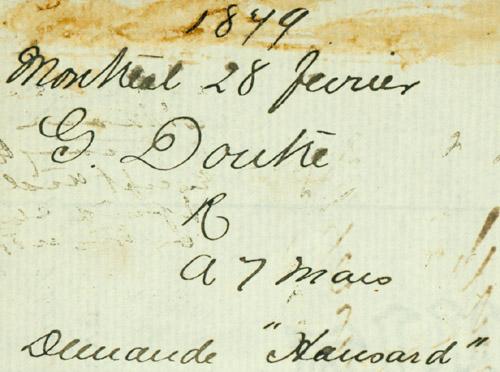 1879
Montréal 28 fevrier
G. Doutre
R
a 7 mars
Demande "Hansard"